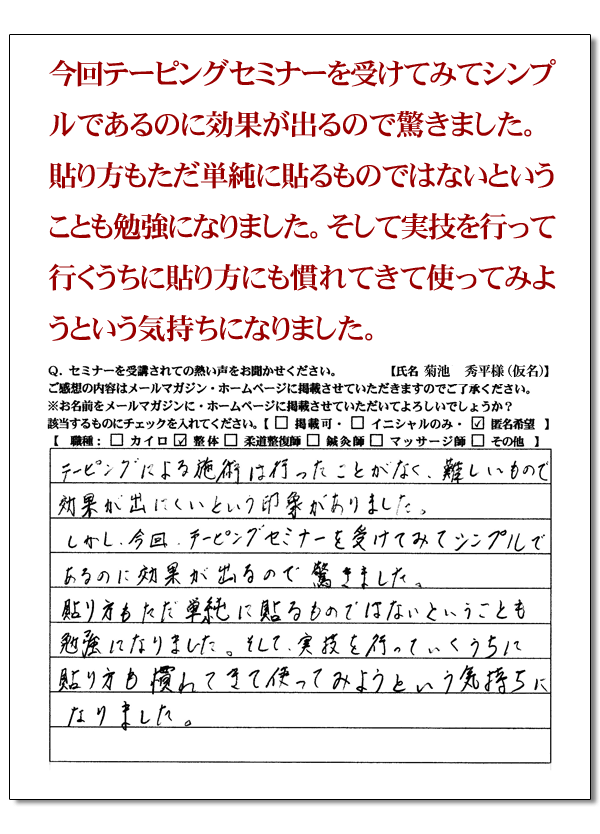 今回テーピングセミナーを受けてみてシンプ
ルであるのに効果が出るので驚きました。
貼り方もただ単純に貼るものではないという
ことも勉強になりました。そして実技を行って
行くうちに貼り方にも慣れてきて使ってみよ
うという気持ちになりました。
Q．セミナーを受講されての熱い声をお聞かせください。　【氏名 菊池　秀平様（仮名）】
ご感想の内容はメールマガジン・ホームページに掲載させていただきますのでご了承ください。
※お名前をメールマガジンに・ホームページに掲載させていただいてよろしいでしょうか？
該当するものにチェックを入れてください。【 □ 掲載可・ □ イニシャルのみ・ ☑ 匿名希望 】
【 職種： □ カイロ ☑ 整体 □ 柔道整復師 □ 鍼灸師 □ マッサージ師 □ その他 】
テーピングによる施術は行ったことがなく、難しいもので
効果が出にくいという印象がありました。
しかし、今回、テーピングセミナーを受けてみてシンプルで
あるのに効果が出るので驚きました。
貼り方もただ単純に貼るものではないということも
勉強になりました。そして、実技を行っていくうちに
貼り方も慣れてきて使ってみようという気持ちに
なりました。